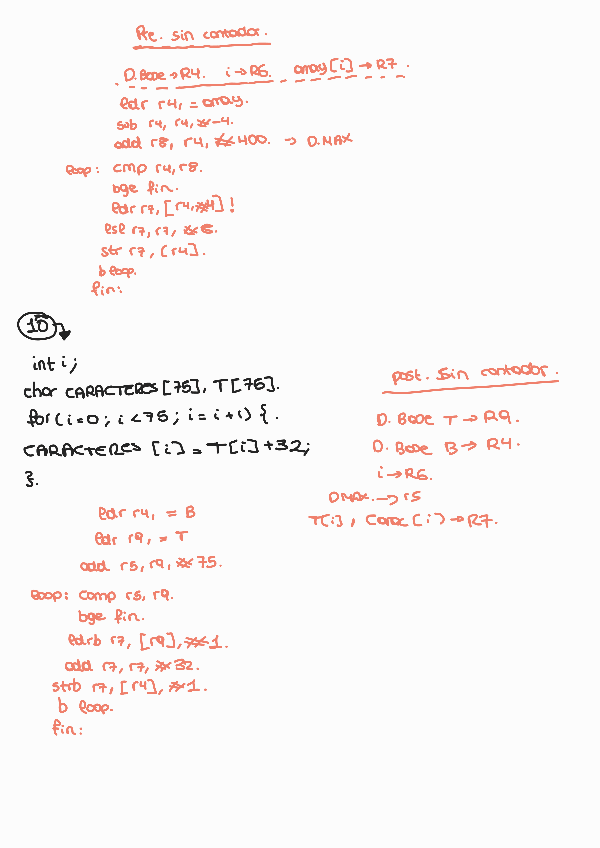 Pre. sin contador.
D.Base → R4. i → R6. array[i] → R7.
ldr r4, = array.
sub r4, r4, #-4.
add r8, r4, #400. → D.MAX
loop: cmp r4, r8.
bge fin.
ldr r7, [r4, #4]!
lsl r7, r7, #6.
str r7, [r4].
b loop.
fin:
10
int i;
char CARACTERES[75], T[76].
for(i=0; i<75; i=i+1) {.
CARACTERES [i] = T[i]+32;
}.
post. sin contador.
D. Base T → R9.
D. Base B → R4.
i → R6.
DMAX. → r5
T[i], Carac[i] → R7.
ldr r4, = B
ldr r9, = T
add r5, r9, #75.
loop: comp r5, r9.
bge fin.
ldrb r7, [r9], #1.
add r7, r7, #32.
strb r7, [r4], #1.
b loop.
fin: